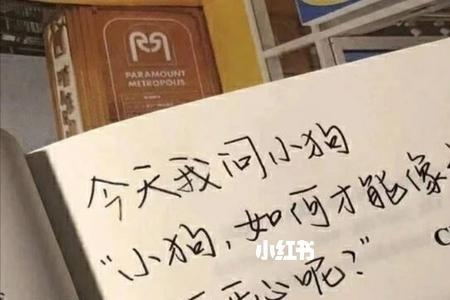 PARAMOUNT
METROPOLIS
今天我问小狗
“小狗,如何才能像
小红书
心呢?”